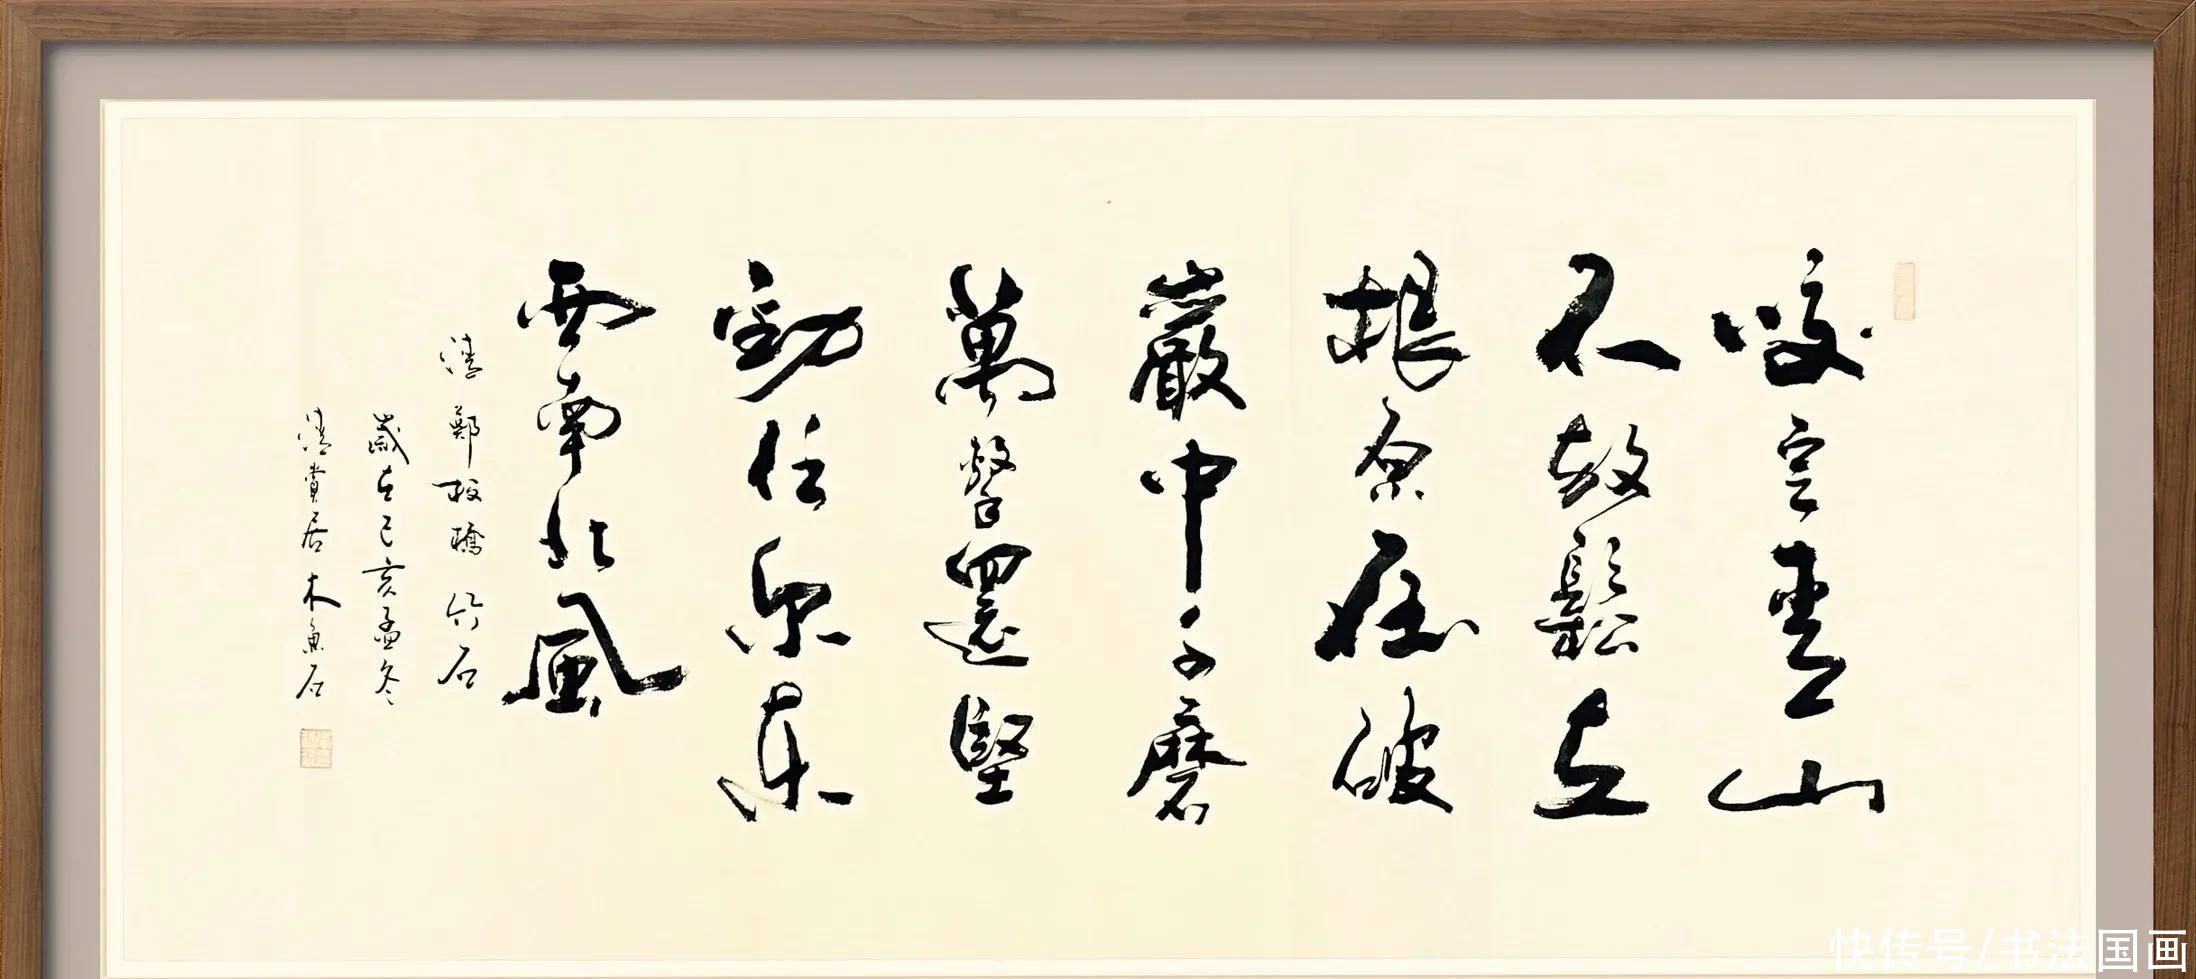 咬定青山
不放鬆立
根原在破
巖中千磨
萬擊還堅
勁任尔東
西南北風
清鄭板橋竹石
歲在己亥孟冬
清賞居木魚石
快传号/书法国画